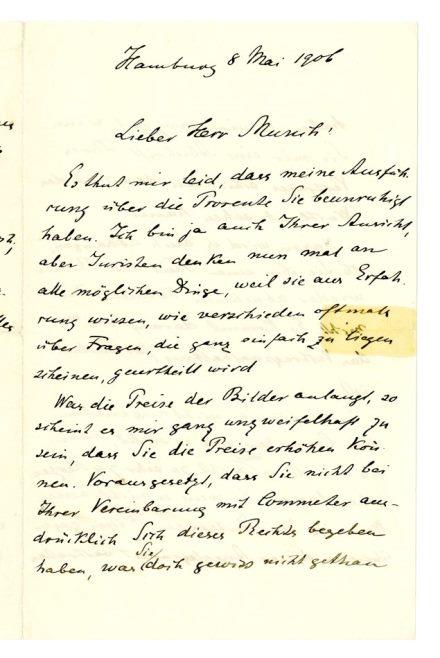 Hamburg 8 Mai 1906
Lieber Herr Munch!
Es thut mir leid, dass meine Ausfüh-
rung über die Prorente Sie beunruhigt
haben. Ich bin ja auch Ihrer Ansicht,
aber Juristen denken nun mal an
alle möglichen Dinge, weil sie aus Erfah-
rung wissen, wie verschieden oftmals
über Fragen, die ganz einfach zu liegen
scheinen, geurtheilt wird
Was die Preise der Bilder anlangt, so
scheint es mir ganz unzweifelhaft zu
sein, dass Sie die Preise erhöhen Kön-
nen. Vorausgesetzt, dass Sie nicht bei
Ihrer Vereinbarung mit Commeter aus-
drücklich Sich dieses Rechts begeben
haben, was Sie doch gewiss nicht gethan